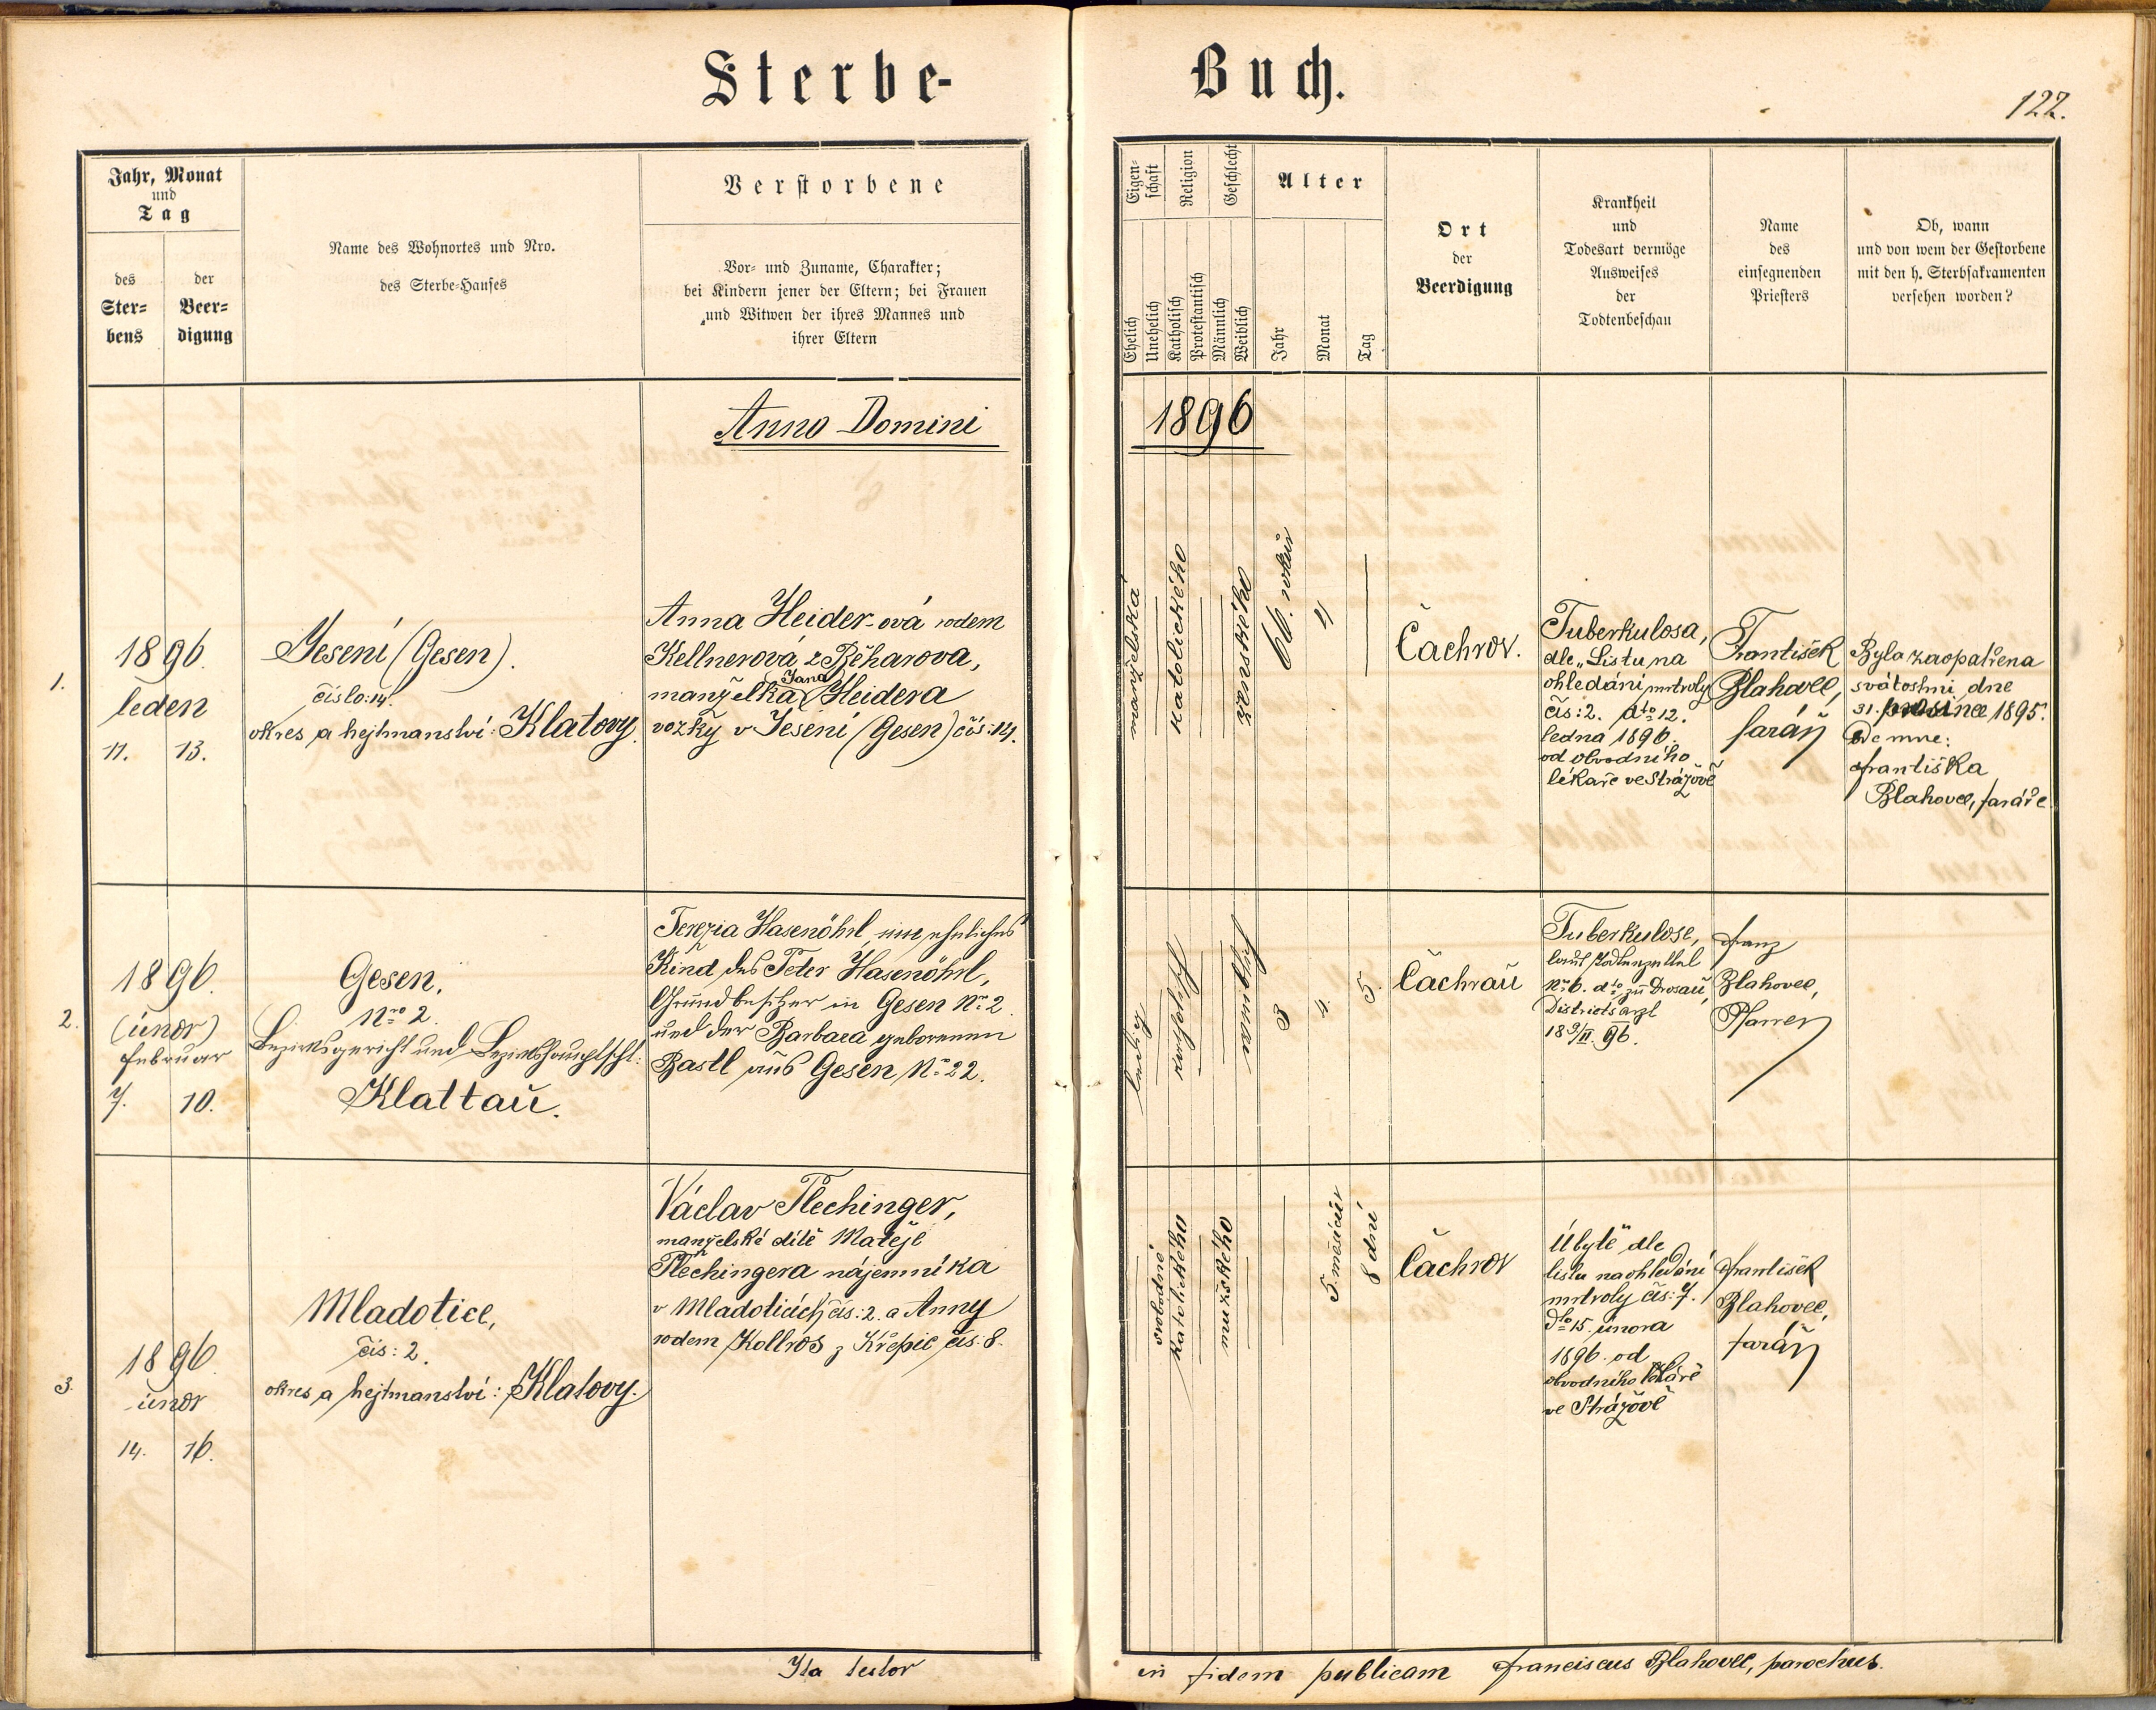 Sterbe-Buch.
122.
Jahr, Monat
und
Tag
des
Ster-
bens
der
Beer-
digung
Name des Wohnortes und Nro.
des Sterbe-Hauses
Verstorbene
Vor- und Zuname, Charakter;
bei Kindern jener der Eltern; bei Frauen
und Witwen der ihres Mannes und
ihrer Eltern
Eigen-
schaft
Religion
Geschlecht
Alter
Ehelich
Unehelich
Katholisch
Protestantisch
Männlich
Weiblich
Jahr
Monat
Tag
Ort
der
Beerdigung
Krankheit
und
Todesart vermöge
Ausweises
der
Todtenbeschau
Name
des
einsegnenden
Priesters
Ob, wann
und von wem der Gestorbene
mit den h. Sterbsakramenten
versehen worden?
Anno Domini 1896
1.
1896.
leden
11. 13.
Jesení (Gesen).
číslo: 14.
okres a hejtmanství: Klatovy.
Anna Heider-ová rodem
Kellnerová z Běharova,
manželka Jana Heidera
vozky v Jesení (Gesen) čís: 14.
manželská
katolického
ženského
66. roků
4
Čachrov.
Tuberkulosa,
dle „Listu na
ohledání mrtvoly
čís: 2. dto 12.
ledna 1896.
od obvodního
lékaře ve Strážově
František
Blahovec,
farář
Byla zaopatřena
svátostmi dne
31. prosince 1895.
Ode mne:
Františka
Blahovec, faráře
2.
1896.
(únor)
Februar
7. 10.
Gesen,
Nro 2.
Bezirksgericht und Bezirkshauptscht:
Klattau.
Terezia Hasenöhrl, eheliches
Kind des Peter Hasenöhrl,
Grundbesitzer in Gesen Nr. 2.
und der Barbara geborenen
Bastl aus Gesen Nr. 22.
ledig
katholisch
weiblich
3
4.
5.
Čachrau
Tuberkulose,
laut Todtenzettel
Nr. 6. dto zu Drosau,
Districtsarzt
18 9/II. 96.
Franz
Blahovec,
Pfarrer
3.
1896.
únor
14. 16.
Mladotice,
čís: 2.
okres a hejtmanství: Klatovy.
Václav Plechinger,
manželské dítě Matěje
Plechingera nájemníka
v Mladoticích čís: 2. a Anny
rodem Kollros z Křepic čís: 8.
svobodné
katolického
mužského
5. měsíců
8 dní
Čachrov
Úbytě dle
listu na ohledání
mrtvoly čís: 7.
dto 15. února
1896. od
obvodního lékaře
ve Strážově
František
Blahovec,
farář
Ita testor in fidem publicam Franciscus Blahovec, parochus.